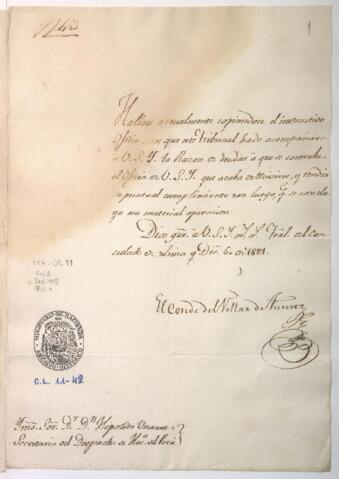 N 42
1
Hallase actualmente copiandose el instructivo
Oficio con que este Tribunal ha de acompañar
a V.S.Y. la Razon de deudas a que se contrahe
el Oficio de V.S.Y. que acaba de recivirse, y tendrá
puntual cumplimiento tan luego, q.e se conclu
ya esa material operacion
Dios gue. a V.S.Y. m.s a.s Tral. del Con
sulado de Lima y Dre. 6 de 1821.
El Conde del Villar de Fuente
MINISTERIO DE HACIENDA
ARCHIVO HISTORICO
O.L. 11-42
Ymo. Sor. Dr. Dn. Hipolito Unanue
Secretario del Despacho de Hac.a del Perú